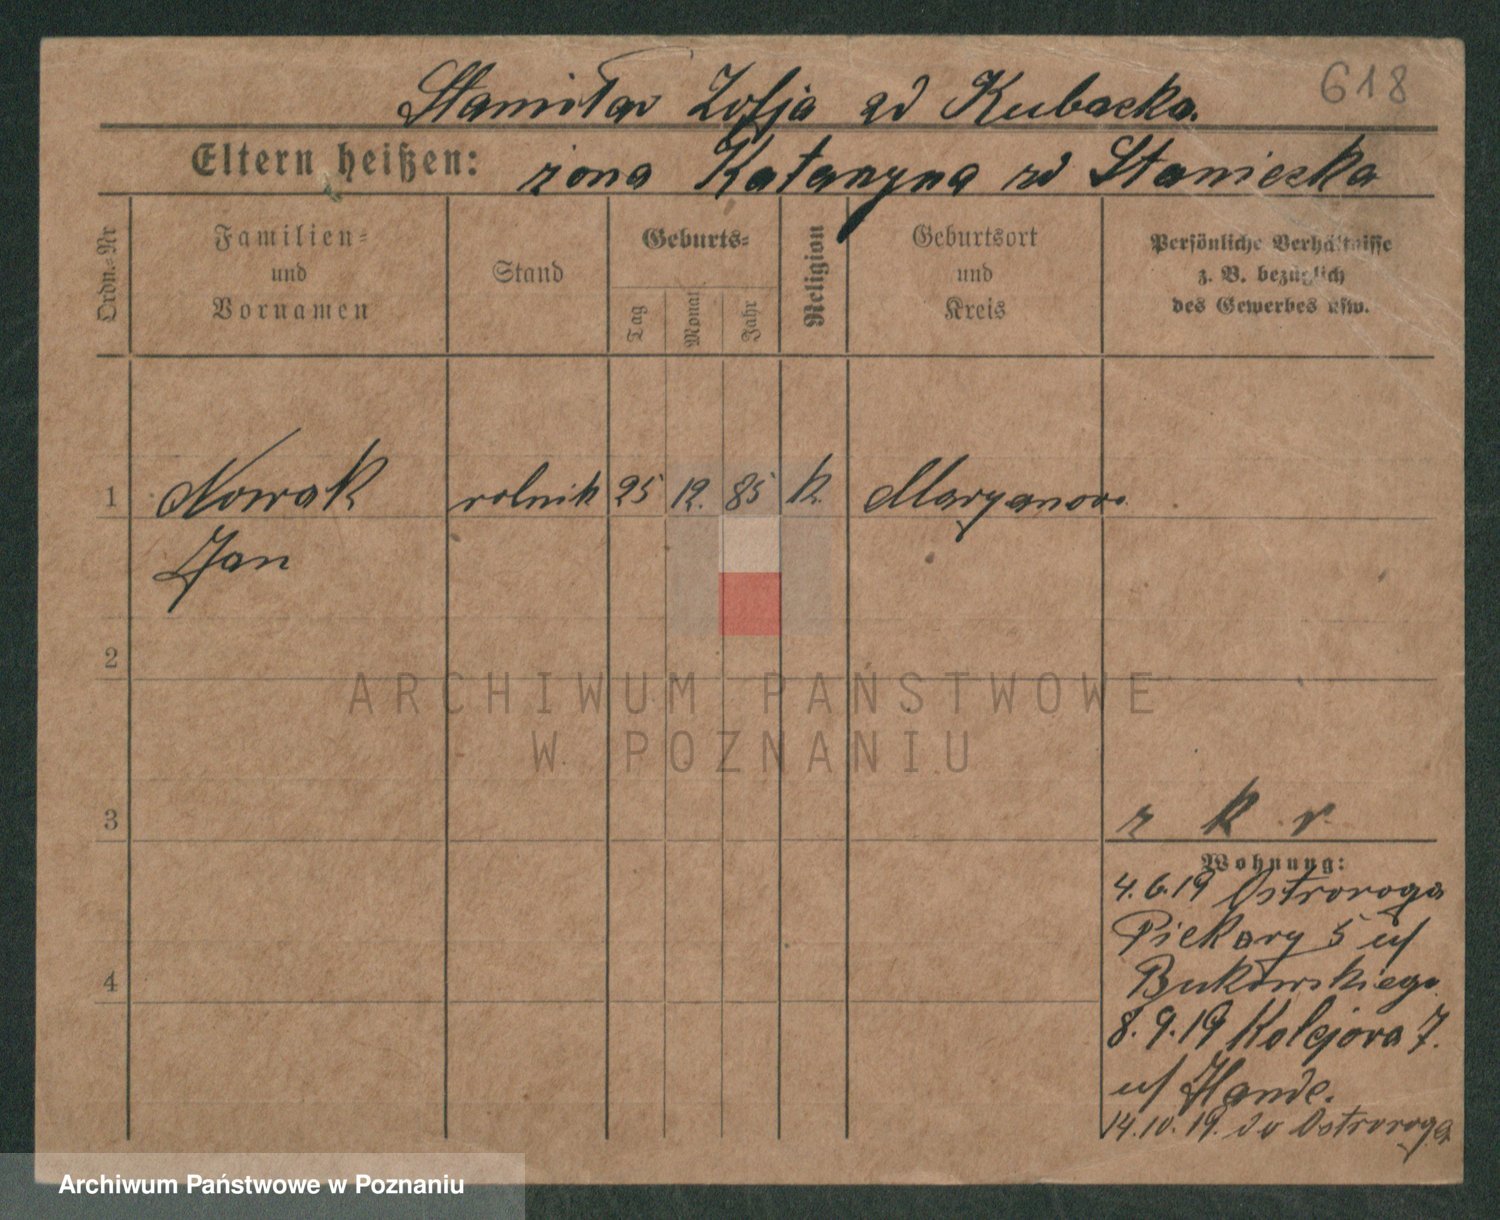 618
Stanisław Zofja zd Kubacka.
Eltern heißen: żona Katarzyna zd Stanieszka
Ordn.-Nr
Familien-
und
Vornamen
Stand
Geburts-
Tag
Monat
Jahr
Religion
Geburtsort
und
Kreis
Persönliche Verhältnisse
z. B. bezüglich
des Gewerbes usw.
1 Nowak rolnik 25 12. 85 k. Maryanowo
Jan
2
ARCHIWUM PAŃSTWOWE
W POZNANIU
3
r k r
Wohnung:
4.6.19 Ostroroga
Piekary 5 u/
Bukowskiego
8.9.19 Kolejowa 7.
u/ Hande.
14.10.19. do Ostroroga
4
Archiwum Państwowe w Poznaniu